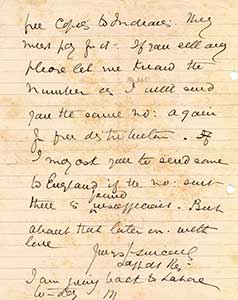 free Copies to Indians. They
must pay for it. If you sell any
please let me know the
number & I will send
you the same no: again
for free distribution. If
I may ask you to send some
to England if the no: sent
there is found insufficient. But
about that later on. With
love
Yours sincerely
I am going back to Lahore